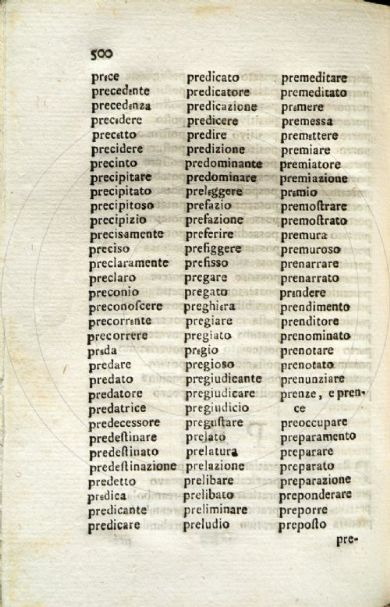 500
prece
precedente
precedenza
precedere
precetto
precidere
precinto
precipitare
precipitato
precipitoso
precipizio
precisamente
preciso
preclaramente
preclaro
preconio
preconoſcere
precorrente
precorrere
preda
predare
predato
predatore
predatrice
predecessore
predeſtinare
predeſtinato
predeſtinazione
predetto
predica
predicante
predicare
predicato
predicatore
predicazione
predicere
predire
predizione
predominante
predominare
preleggere
prefazio
prefazione
preferire
prefiggere
prefisso
pregare
pregato
preghiera
pregiare
pregiato
pregio
pregioso
pregiudicante
pregiudicare
pregiudicio
preguſtare
prelato
prelatura
prelazione
prelibare
prelibato
preliminare
preludio
premeditare
premeditato
premere
premessa
premettere
premiare
premiatore
premiazione
premio
premoſtrare
premoſtrato
premura
premuroso
prenarrare
prenarrato
prendere
prendimento
prenditore
prenominato
prenotare
prenotato
prenunziare
prenze, e pren-
ce
preoccupare
preparamento
preparare
preparato
preparazione
preponderare
preporre
prepoſto
pre-